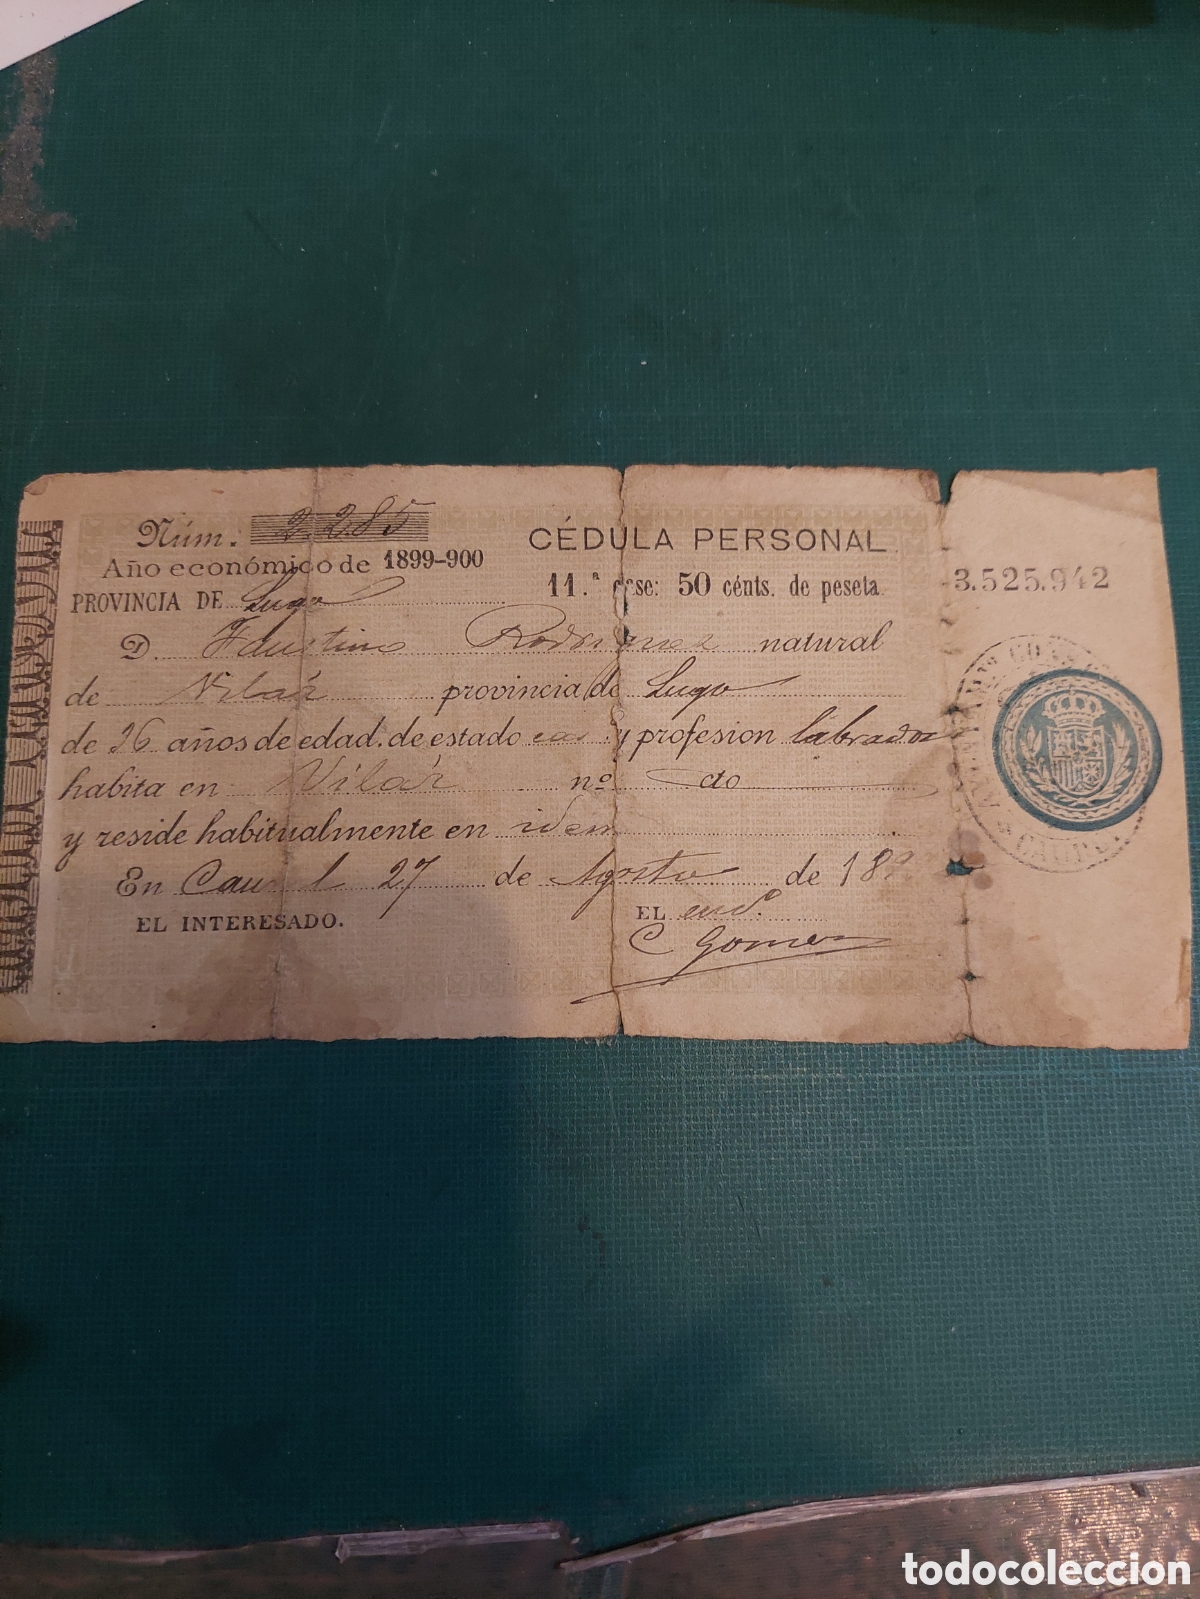 Núm. 2.285
Año económico de 1899-900
PROVINCIA DE Lugo
CÉDULA PERSONAL
11.ª clase: 50 cénts. de peseta
3.525.942
D. Faustino Rodriguez natural
de Vilar provincia de Lugo
de 26 años de edad, de estado y profesion labrador
habita en Vilár nº cto
y reside habitualmente en idem
En Caurel 27 de Agosto de 189
EL INTERESADO.
EL
C Gomez
todocoleccion